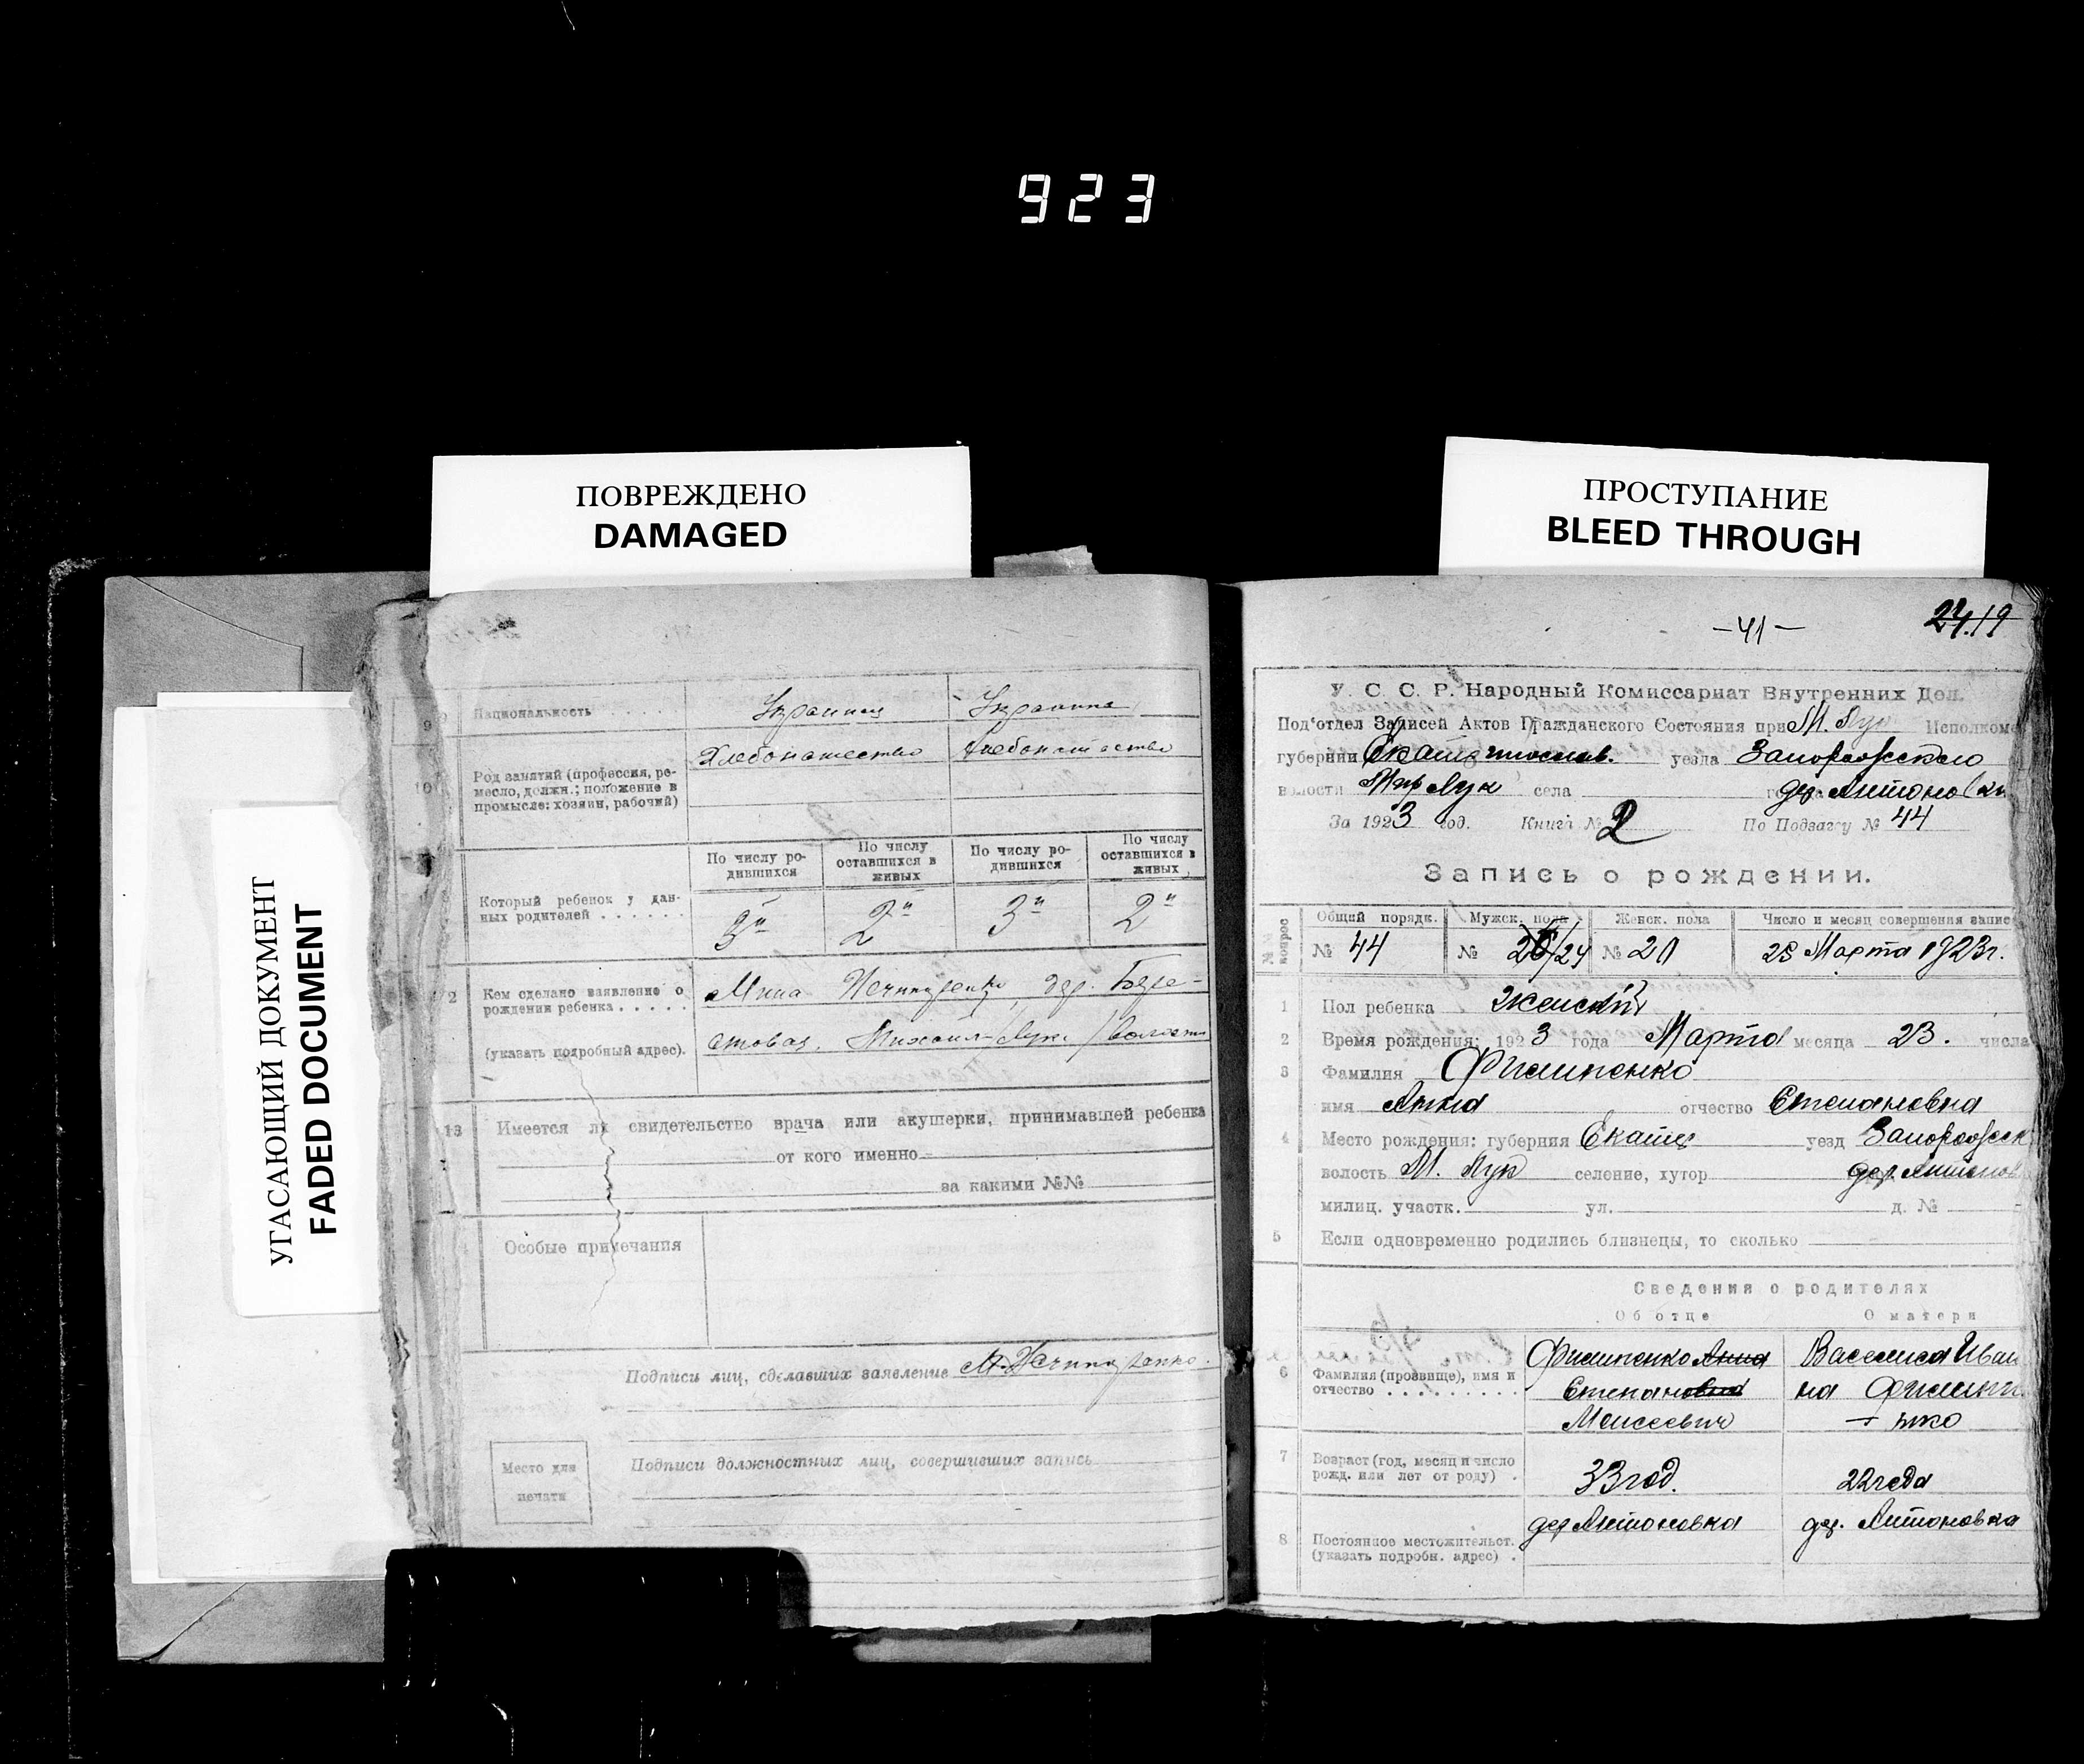 923
ПОВРЕЖДЕНО
DAMAGED
ПРОСТУПАНИЕ
BLEED THROUGH
УГАСАЮЩИЙ ДОКУМЕНТ
FADED DOCUMENT
9 Национальность Украинец Украинка
10 Род занятий (профессия, ре-
месло, должн.; положение в
промысле: хозяин, рабочий)
Хлебопашество Хлебопашество
Который ребенок у дан-
ных родителей
По числу ро-
дившихся
По числу
оставшихся в
живых
По числу ро-
дившихся
По числу
оставшихся в
живых
3й 2й 3й 2й
Кем сделано заявление о
рождении ребенка
(указать подробный адрес).
Мина Нечипуренко, дер. Бере-
стовая, Михаил-Лук. волости
13 Имеется ли свидетельство врача или акушерки, принимавшей ребенка
от кого именно
за какими №№
Особые примечания
Подписи лиц, сделавших заявление М. Нечипуренко.
Место для
печати
Подписи должностных лиц, совершивших запись
-41-
24.19
У. С. С. Р. Народный Комиссариат Внутренних Дел.
Под'отдел Записей Актов Гражданского Состояния при М. Лук Исполкоме
губернии Екатеринослав. уезда Запорожского
волости Мих Лук села дер. Антоновки
За 1923 год. Книга № 2 По Подзагсу № 44
Запись о рождении.
№№ вопрос
Общий порядк. Мужск. пола Женск. пола Число и месяц совершения запис
№ 44 № 20/24 № 20 28 Марта 1923г.
1 Пол ребенка Женский
2 Время рождения: 1923 года Марта месяца 23. числа
3 Фамилия Филипенко
имя Анна отчество Степановна
4 Место рождения: губерния Екатер уезд Запорожск
волость М. Лук селение, хутор дер. Антонов
милиц. участк. ул. д. №
5 Если одновременно родились близнецы, то сколько
Сведения о родителях
Об отце О матери
6 Фамилия (прозвище), имя и
отчество
Филипенко Анна
Степановна
Моисеевич
Василиса Иван
на Филипп
енко
7 Возраст (год, месяц и число
рожд. или лет от роду)
33 год. 22 года
8 Постоянное местожительст.
(указать подробн. адрес)
дер Антоновка дер. Антоновка